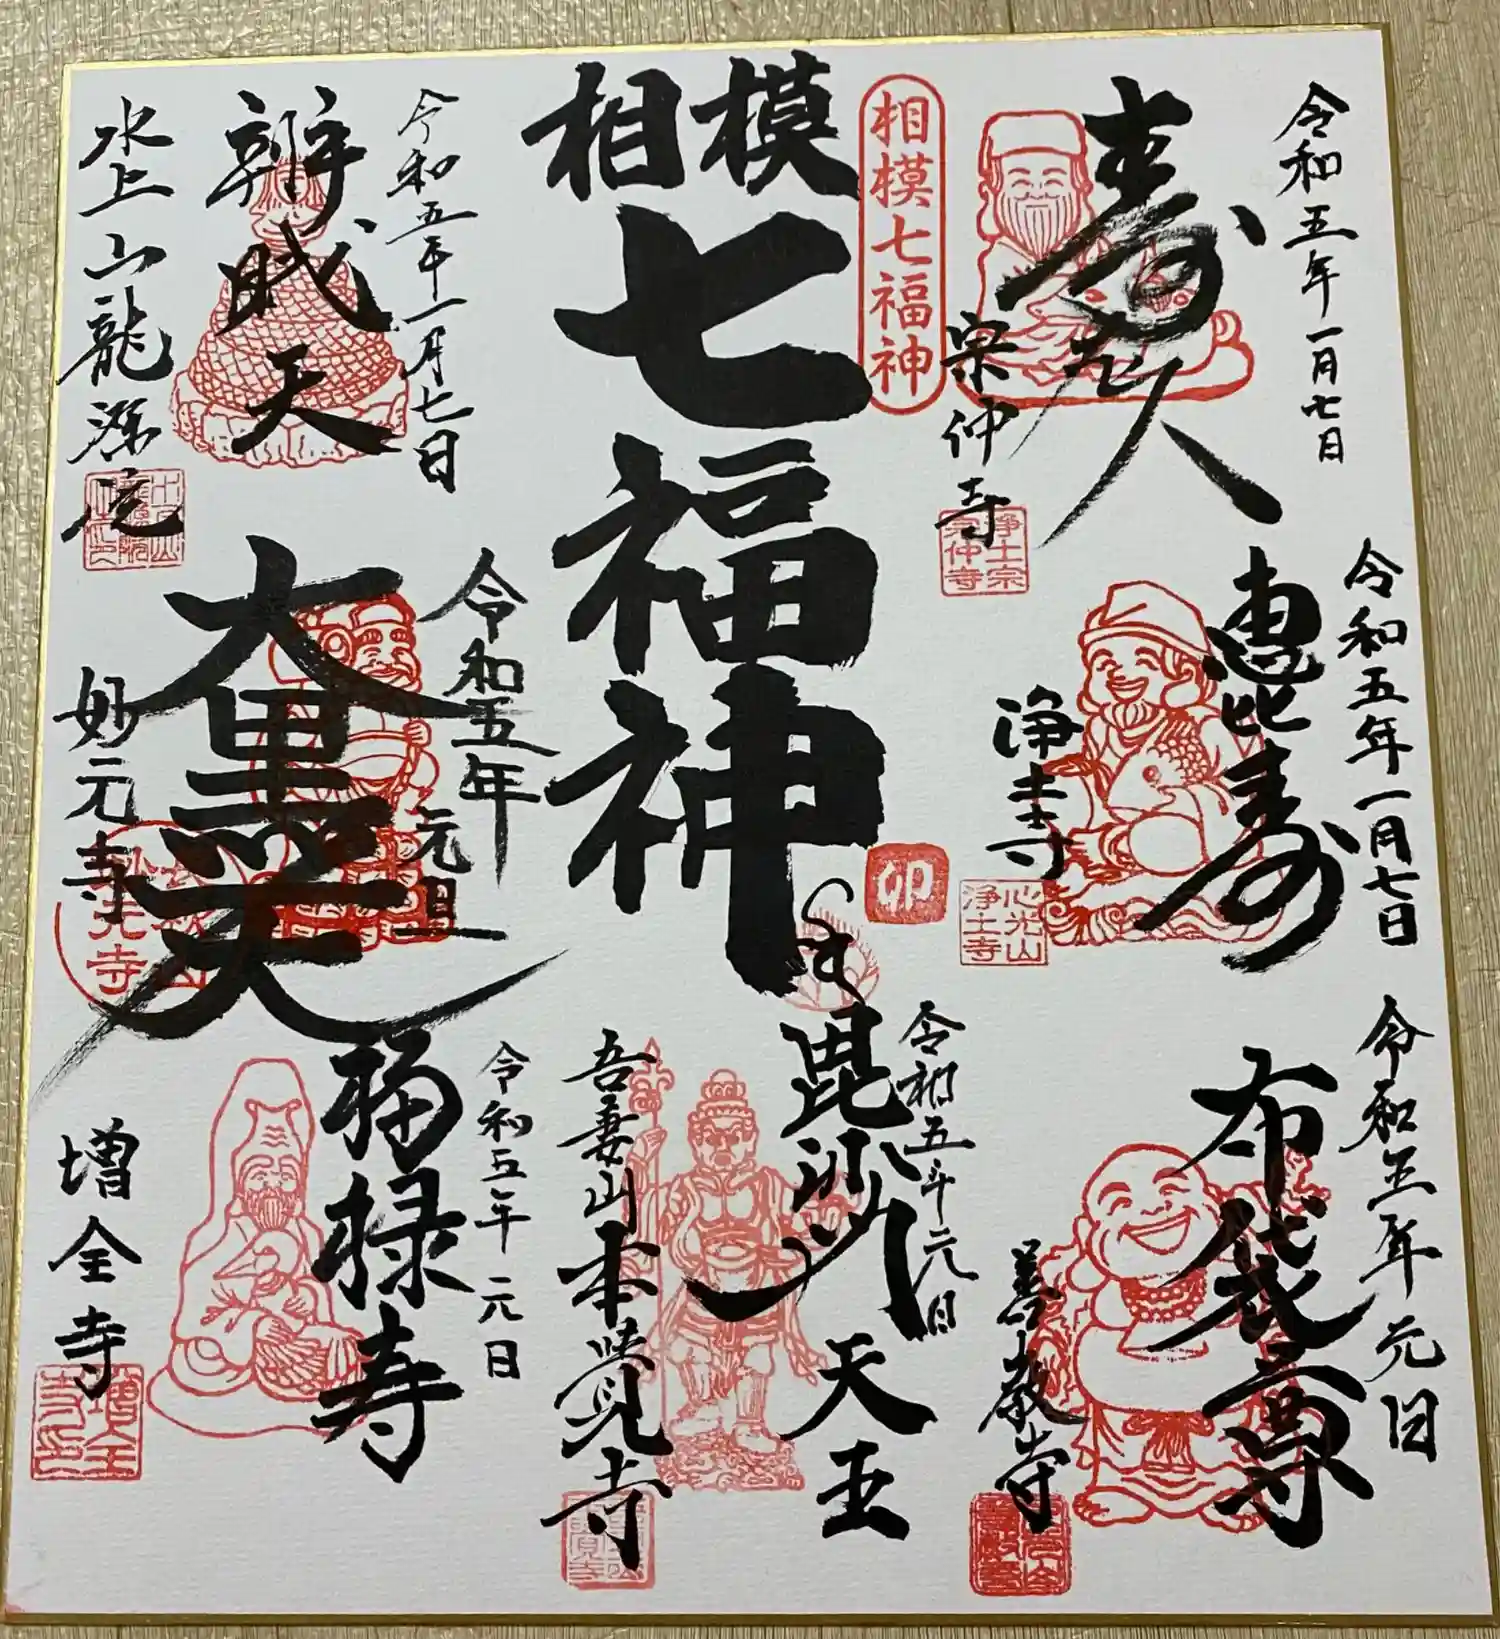 令和五年一月七日
寿老人
宗仲寺
浄土宗
宗仲寺
相模七福神
相模
七福神
卯
令和五年一月七日
辨財天
水上山龍源院
令和五年一月七日
恵比寿
浄土寺
心光山
浄土寺
令和五年
元旦
大黒天
妙元寺
令和五年元日
布袋尊
善教寺
令和五年元日
毘沙門天王
吾妻山本覺寺
令和五年元日
福禄寿
増全寺